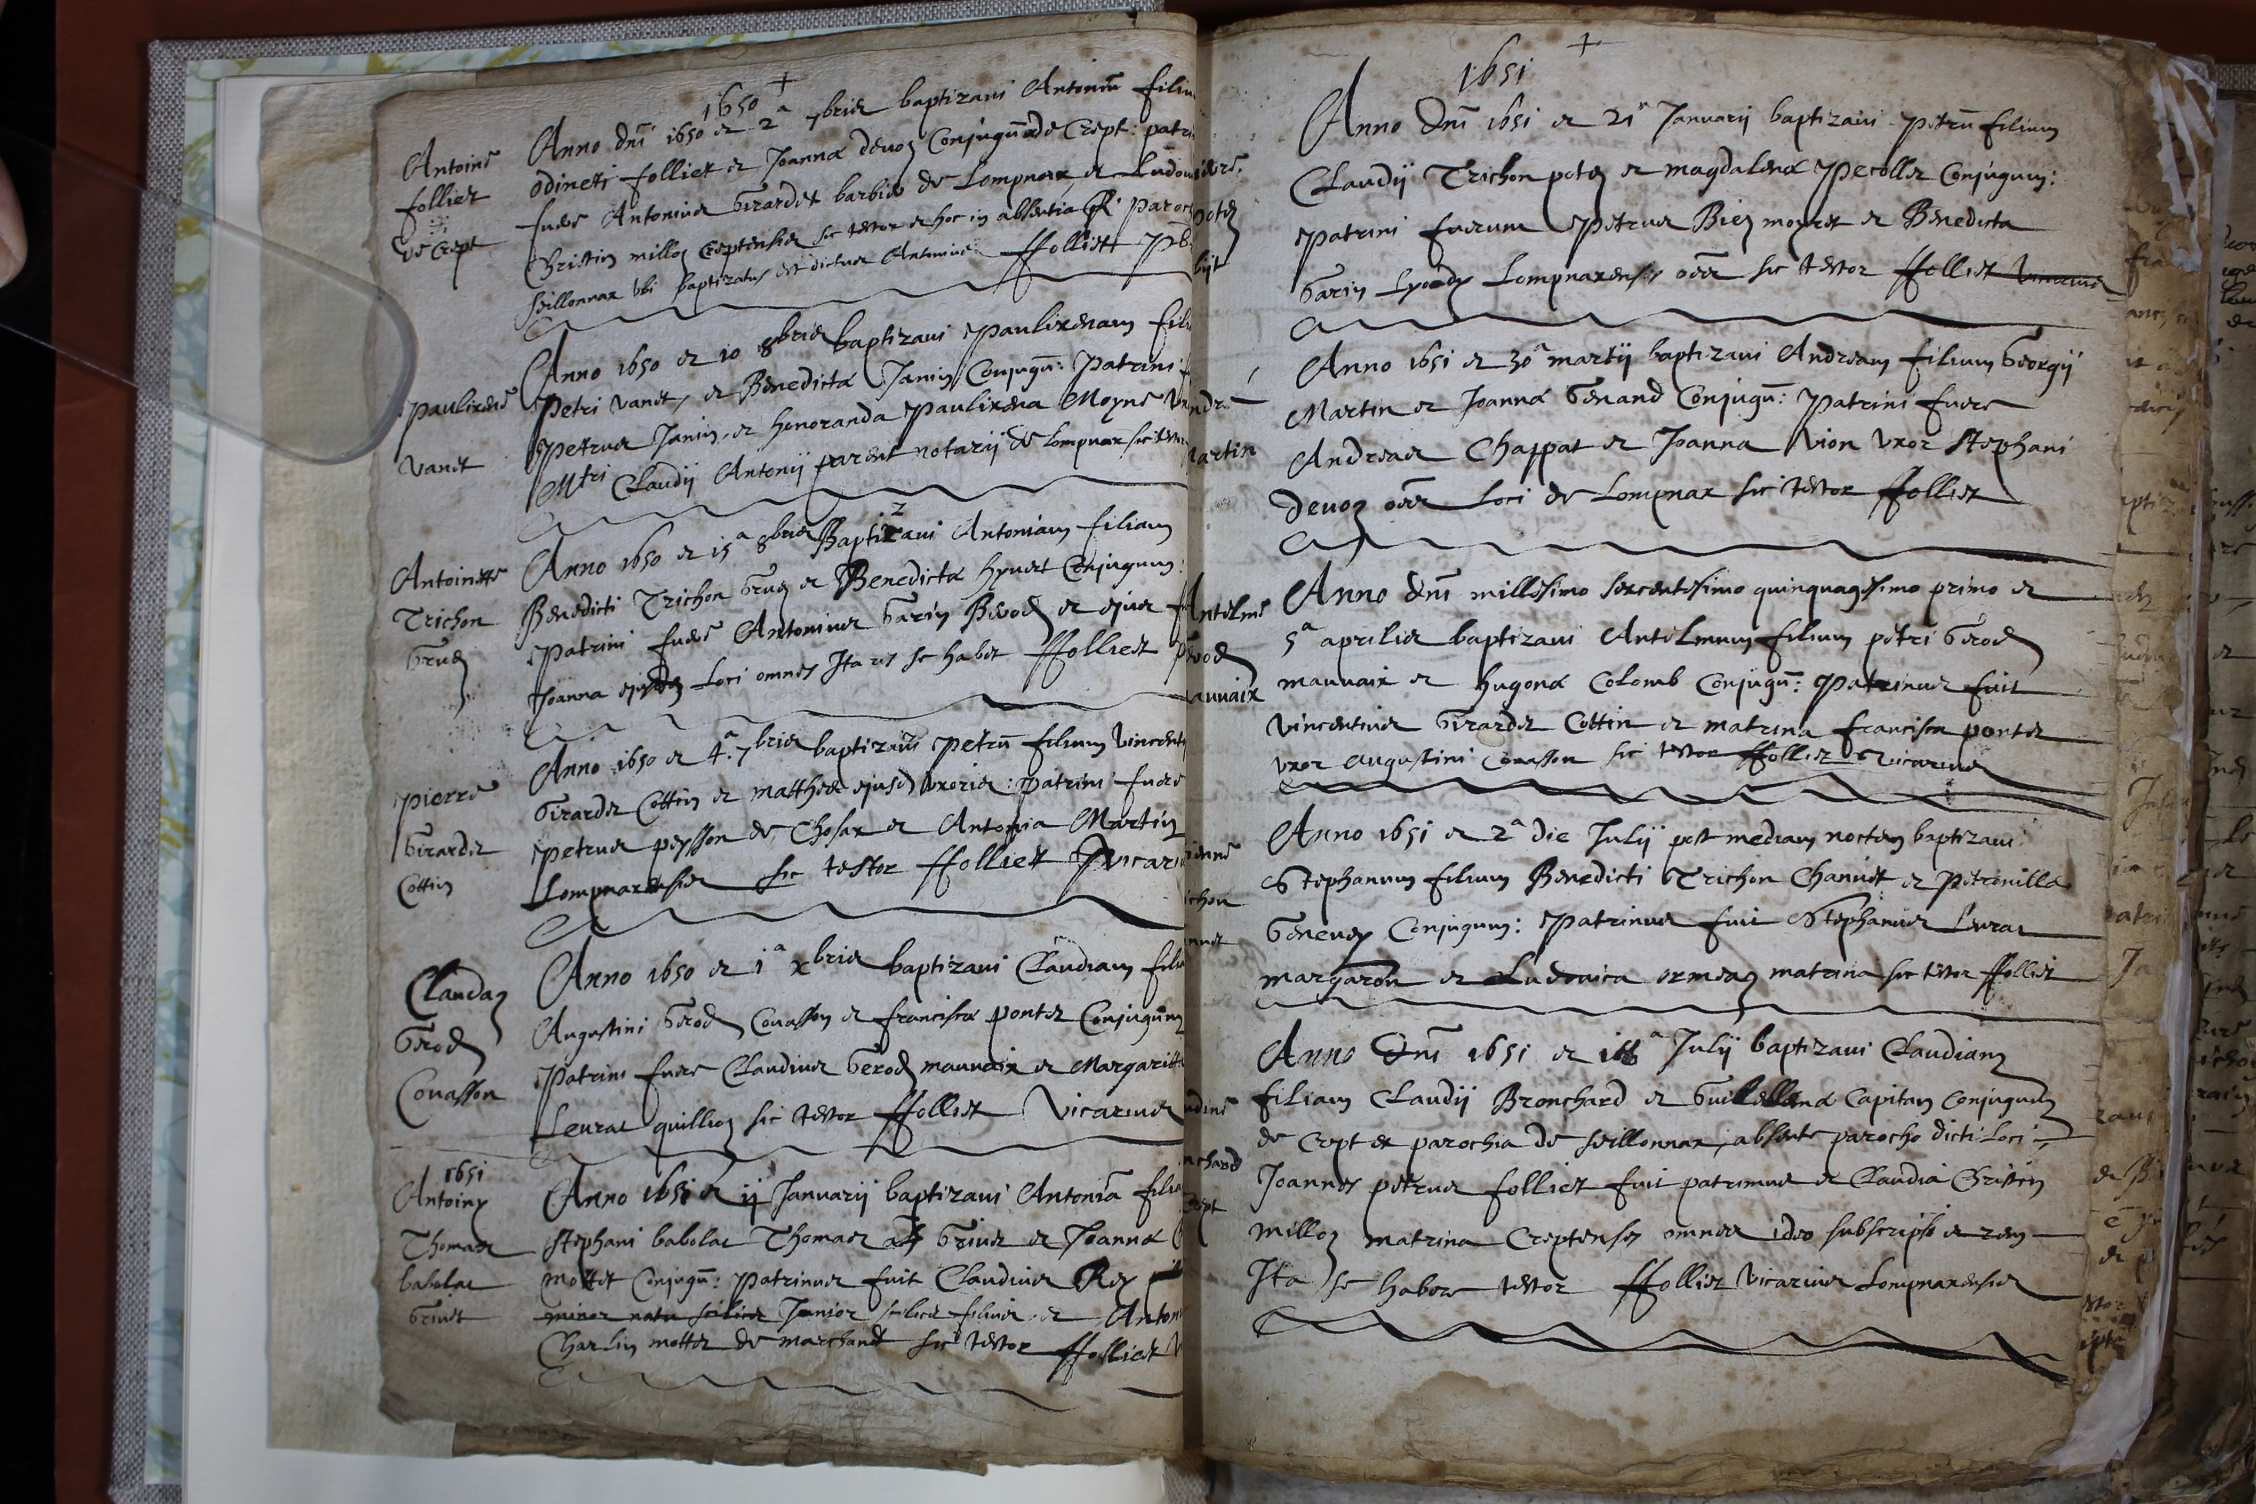 1650
Antoine
folliet
de Crept
Anno dnī 1650 et 2ª 7bris baptizavi Antoniū filiu
odineti folliet et Joanna devoz Conjugū de Crept: patri
fuere Antonius Girardet barbier de Lompnax, et Ludovi
Christin milloz Creptensis sic testor et hoc in absentia R. paroc
seillonnax ubi baptizatus est dictus Antonius ffolliet Pb
paulixene
vanet
Anno 1650 et 10 8bris baptizavi Paulixenam fil
Petri vanet, et Benedicta Janin Conjugū: Patrini
Petrus Janin, et honoranda Paulixena Moyne
Mtri Claudij Antonij notarij de Lompnax sic testor
Antoinette
Trichon
Gruz
Anno 1650 et 15ª 8bris Baptizavi Antoniam filiam
Benedicti Trichon Gruz et Benedicta hyvert Conjugum:
Patrini fuere Antonius Garin Berod et ejus
Joanna Loci omnes Ita res se habet ffolliet
pierre
Girardet
Cottin
Anno 1650 et 4ª 7bris baptizavi Petrū filium Vincenti
Girardet Cottin et matthee ejusd uxoris: patrini fuere
Petrus peysson de Chosax et Antonia Martin
Lompnaxensis sic testor ffolliet Vicari
Clauda
Gerod
Couasson
Anno 1650 et 1ª xbris baptizavi Claudiam filia
Augustini Gerod Couasson et francisca pontet Conjugum
Patrini fuere Claudius Gerod mauvaix et Margarit
Leurat quillioz sic testor ffolliet Vicarius
1651
Antoiny
Thomas
babolat
Grivet
Anno 1651 et ij Januarij baptizavi Antoniā filia
stephani babolat Thomas Grivet et Joanna
mottet Conjugū: patrinus fuit Claudius Rey
minor natu scilicet Junior scilicet filius, et Anton
Charlin mottet de marchand sic testor ffolliet
1651
Anno dnī 1651 et 21ª Januarij baptizavi Petrū filium
Claudij Trichon potez et magdalena Pecollet Conjugum:
Patrini fuerunt Petrus Biez mouret et Benedicta
Garin Lyondz Lompnaxensis oēs sic testor ffolliet vicarius
Anno 1651 et 30ª martij baptizavi Andream filium Georgij
Martin et Joanna Genand Conjugū: Patrini fuere
Andreas Chappat et Joanna vion uxor stephani
devoz oēs Loci de Lompnax sic testor ffolliet
Antelme
Gerod
mauvaix
Anno dnī millesimo sexcentesimo quinquagesimo primo et
5ª aprilis baptizavi Antelmum filium petri Gerod
mauvaix et hugona Colomb Conjugū: Patrinus fuit
vincentius Girardet Cottin et matrina francisca pontet
uxor augustini Couasson sic testor ffolliet Vicarius
Anno 1651 et 2ª die Julij post mediam noctem baptizavi
Stephanum filium Benedicti Trichon Chanvet et Petronilla
Genevey Conjugum: Patrinus fuit Stephanus Leurat
margaron et Ludovica ormeaz matrina sic testor ffolliet
Anno dnī 1651 et Julij baptizavi Claudiam
filiam Claudij Bronchard et Guillelma Capitan Conjugum
de Crept et parochia de seillonnax, absente parocho dicti Loci
Joannes petrus folliet fuit patrinus et Claudia Christin
milloz matrina Creptenses omnes ideo subscripsi et rem
Ita se habere testor ffolliet Vicarius Lompnaxensis